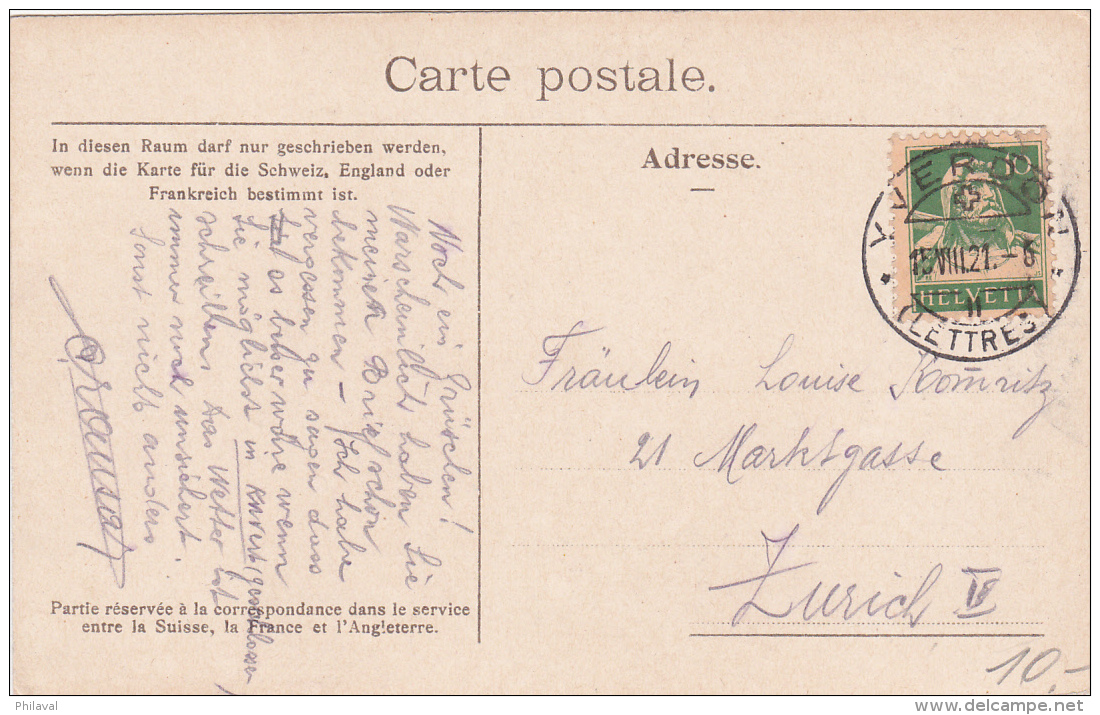 Carte postale.
In diesen Raum darf nur geschrieben werden,
wenn die Karte für die Schweiz, England oder
Frankreich bestimmt ist.
Noch ein Grüschen!
Warscheinlich haben Sie
meinen Brief schon
bekommen – Ich habe
vergessen zu sagen dass
es besser wäre wenn
Sie möglichst in Kuvert (geschlossen)
schreiben. Das Wetter ist
immer noch unsichert.
sonst nicht anders
Partie réservée à la correspondance dans le service
entre la Suisse, la France et l'Angleterre.
Adresse.
10
HELVETIA
YVERDON
15.VIII.21.-8
II
(LETTRES)
Fräulein Louise Komritz
21 Marktgasse
Zürich
10.-
Philaval
delcampe.net